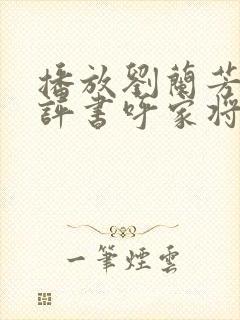 播放劉蘭芳
評書呼家將
一筆煙雲